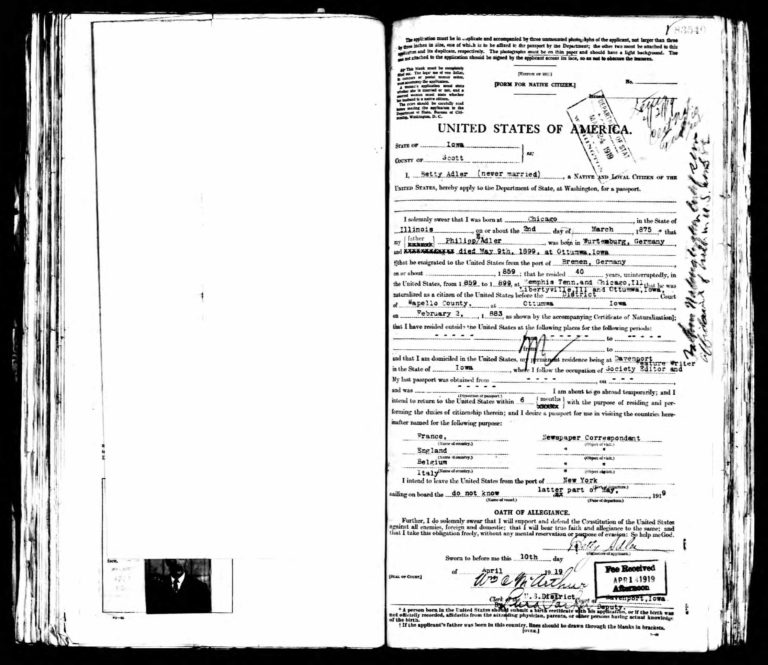 83549
The application must be in duplicate and accompanied by three unmounted photographs of the applicant, not larger than three
by three inches in size, one of which is to be affixed to the passport by the Department; the other two must be attached to this
application and its duplicate, respectively. The photographs must be on thin paper and should have a light background. The
one not attached to the application should be signed by the applicant across its face, so as not to obscure the features.
This blank must be completely
filled out.
[FORM FOR NATIVE CITIZEN.]
No.
UNITED STATES OF AMERICA.
STATE OF Iowa
COUNTY OF Scott
I, Betty Adler (never married), a NATIVE AND LOYAL CITIZEN OF THE
UNITED STATES, hereby apply to the Department of State, at Washington, for a passport.
I solemnly swear that I was born at Chicago, in the State of
Illinois on or about the 2nd day of March, 1875,* that
my father Philipp Adler was born in Wurtemburg, Germany
and died May 9th, 1899, at Ottumwa, Iowa
that he emigrated to the United States from the port of Bremen, Germany
on or about 1859; that he resided 40 years, uninterruptedly, in
the United States, from 1859, to 1899, at Memphis Tenn. and Chicago, Ill. that he was
Libertyville, Ill and Ottumwa, Iowa,
naturalized as a citizen of the United States before the District Court
of Wapello County, at Ottumwa Iowa
on February 2, 1883, as shown by the accompanying Certificate of Naturalization;
that I have resided outside the United States at the following places for the following periods:
to
from to
and that I am domiciled in the United States, my permanent residence being at Davenport
in the State of Iowa, where I follow the occupation of Society Editor and
Feature Writer
My last passport was obtained from on
and was I am about to go abroad temporarily; and I
intend to return to the United States within 6 months with the purpose of residing and per-
forming the duties of citizenship therein; and I desire a passport for use in visiting the countries here-
inafter named for the following purpose:
France, Newspaper Correspondent
(Name of country.) (Object of visit.)
England " "
(Name of country.) (Object of visit.)
Belgium " "
(Name of country.) (Object of visit.)
Italy " "
I intend to leave the United States from the port of New York
sailing on board the do not know latter part of May, 1919
(Name of vessel.) (Date of departure.)
OATH OF ALLEGIANCE.
Further, I do solemnly swear that I will support and defend the Constitution of the United States
against all enemies, foreign and domestic; that I will bear true faith and allegiance to the same; and
that I take this obligation freely, without any mental reservation or purpose of evasion: So help me God.
Betty Adler
(Signature of applicant.)
Sworn to before me this 10th day
of April 1919
[SEAL OF COURT.]
Wm C McArthur
Clerk of the U.S. District Court at Davenport, Iowa
Deputy.
Fee Received
APR 14 1919
Afternoon
* A person born in the United States should submit a birth certificate with his application, or if the birth was
not officially recorded, affidavits from the attending physician, parents, or other persons having actual knowledge
of the birth.
† If the applicant's father was born in this country, lines should be drawn through the blanks in brackets.
[OVER.]
face.